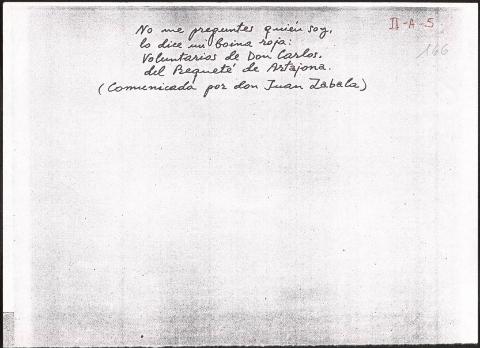 No me preguntes quién soy,
lo dice mi boina roja:
Voluntarios de Don Carlos.
del Requeté de Artajona.
(Comunicada por don Juan Zabala)
II-A-5
166